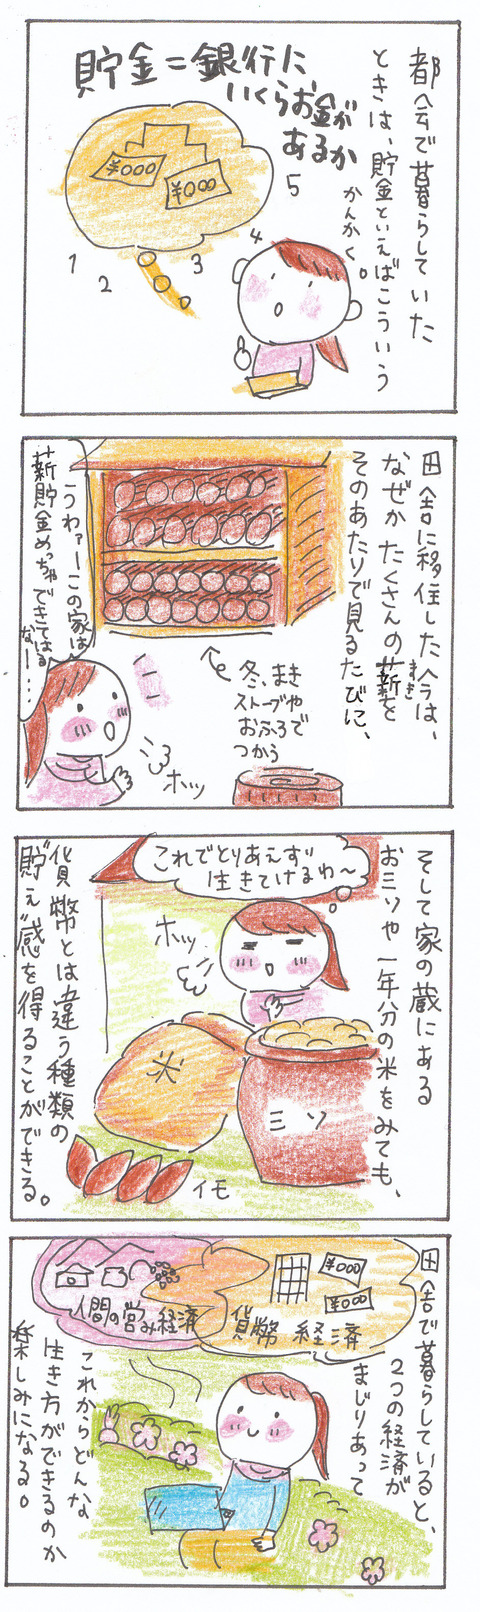 都会で暮らしていた
ときは、貯金といえばこういう
かんかく。
貯金=銀行に
いくらお金が
あるか
¥000
¥000
1
2
3
4
5
田舎に移住した今は、
なぜかたくさんの薪を
まき
そのあたりで見るたびに、
冬、まき
ストーブや
おふろで
つかう
うわァーこの家は
薪貯金めっちゃできてはる
なー…
ホッ
そして家の蔵にある
おミソや一年分の米をみても、
これでとりあえず
生きてけるわ〜
ホッ
米
ミソ
イモ
貨幣とは違う種類の
"貯え"感を得ることができる。
田舎で暮らしていると、
2つの経済が
まじりあって
¥000
¥000
貨幣経済
人間の営み経済
これからどんな
生き方ができるのか
楽しみになる。